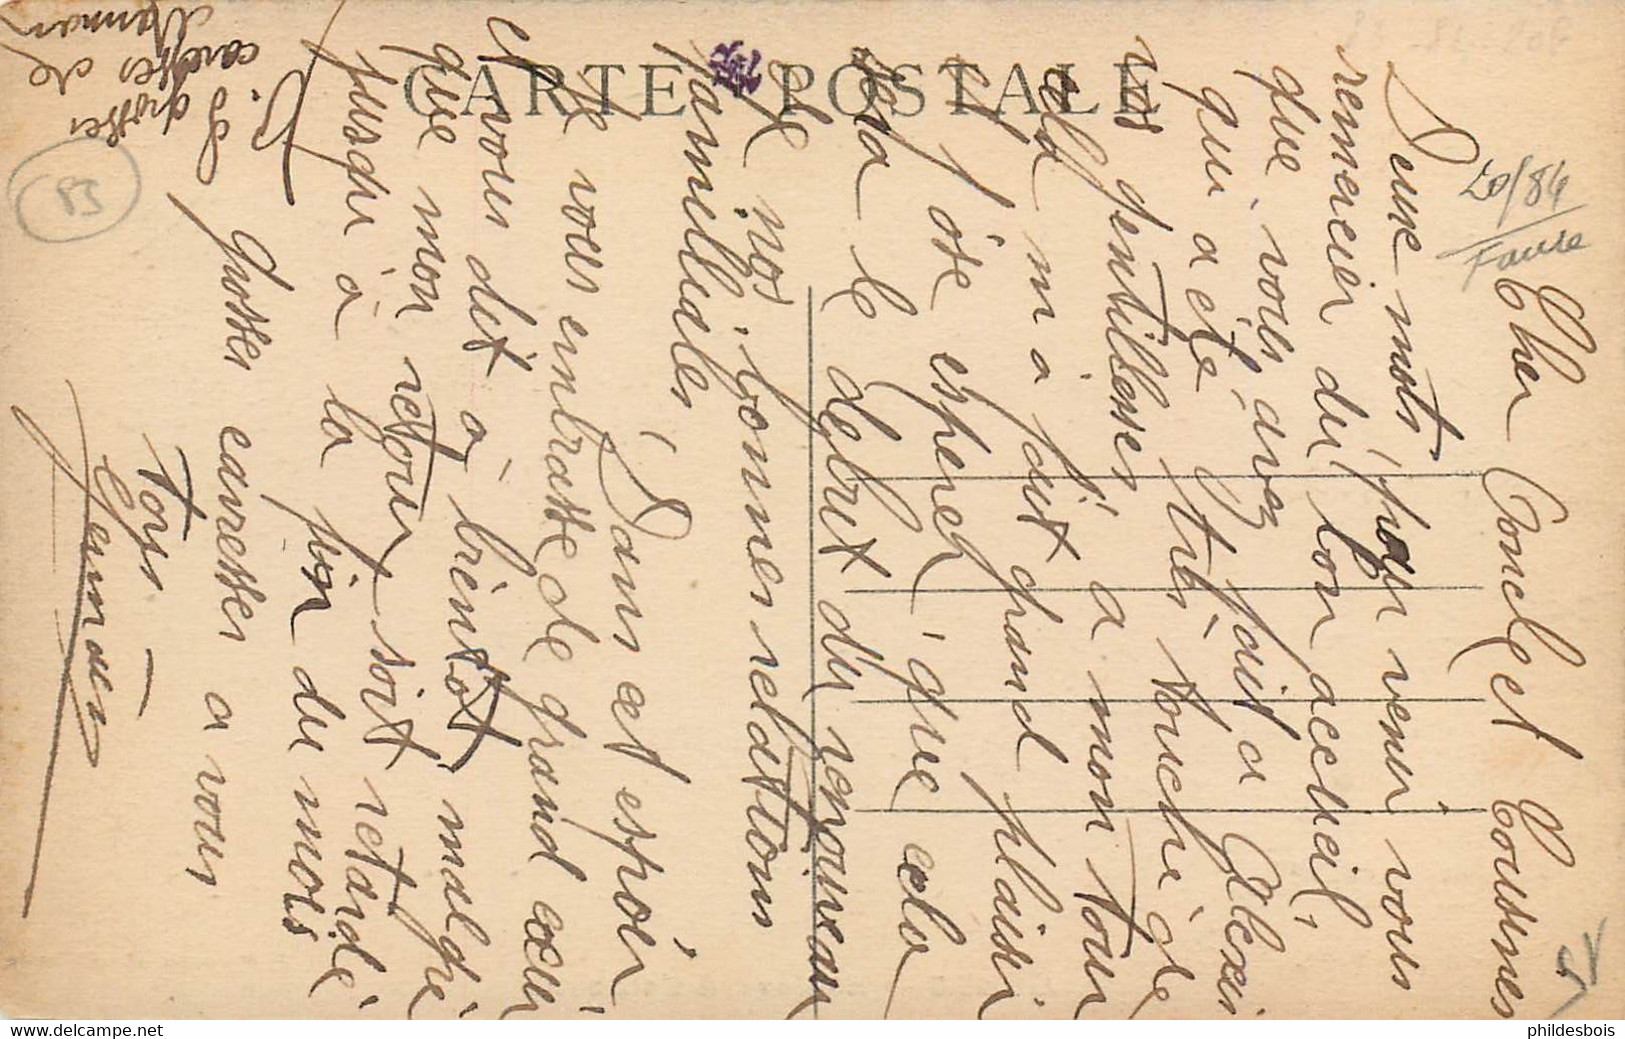 CARTE POSTALE
Cher Oncle et Cousines
Deux mots pour venir vous
remercier du bon accueil,
que vous avez fait a Alexis
qui a été très touché de
vos gentillesses à mon tour
cela m'a fait grand plaisir
et j'ose espérer que cela
sera le debut du renouveau
de nos bonnes relations
familliales
Dans cet espoir
je vous embrasse de grand cœur
et vous dit à bientôt, malgré
que mon retour soit retardé
jusqu'à la fin du mois
Grosses caresses a vous
tous
Germain
P.S grosses
caresses de
83
20/84
Fausse
SV
phildesbois